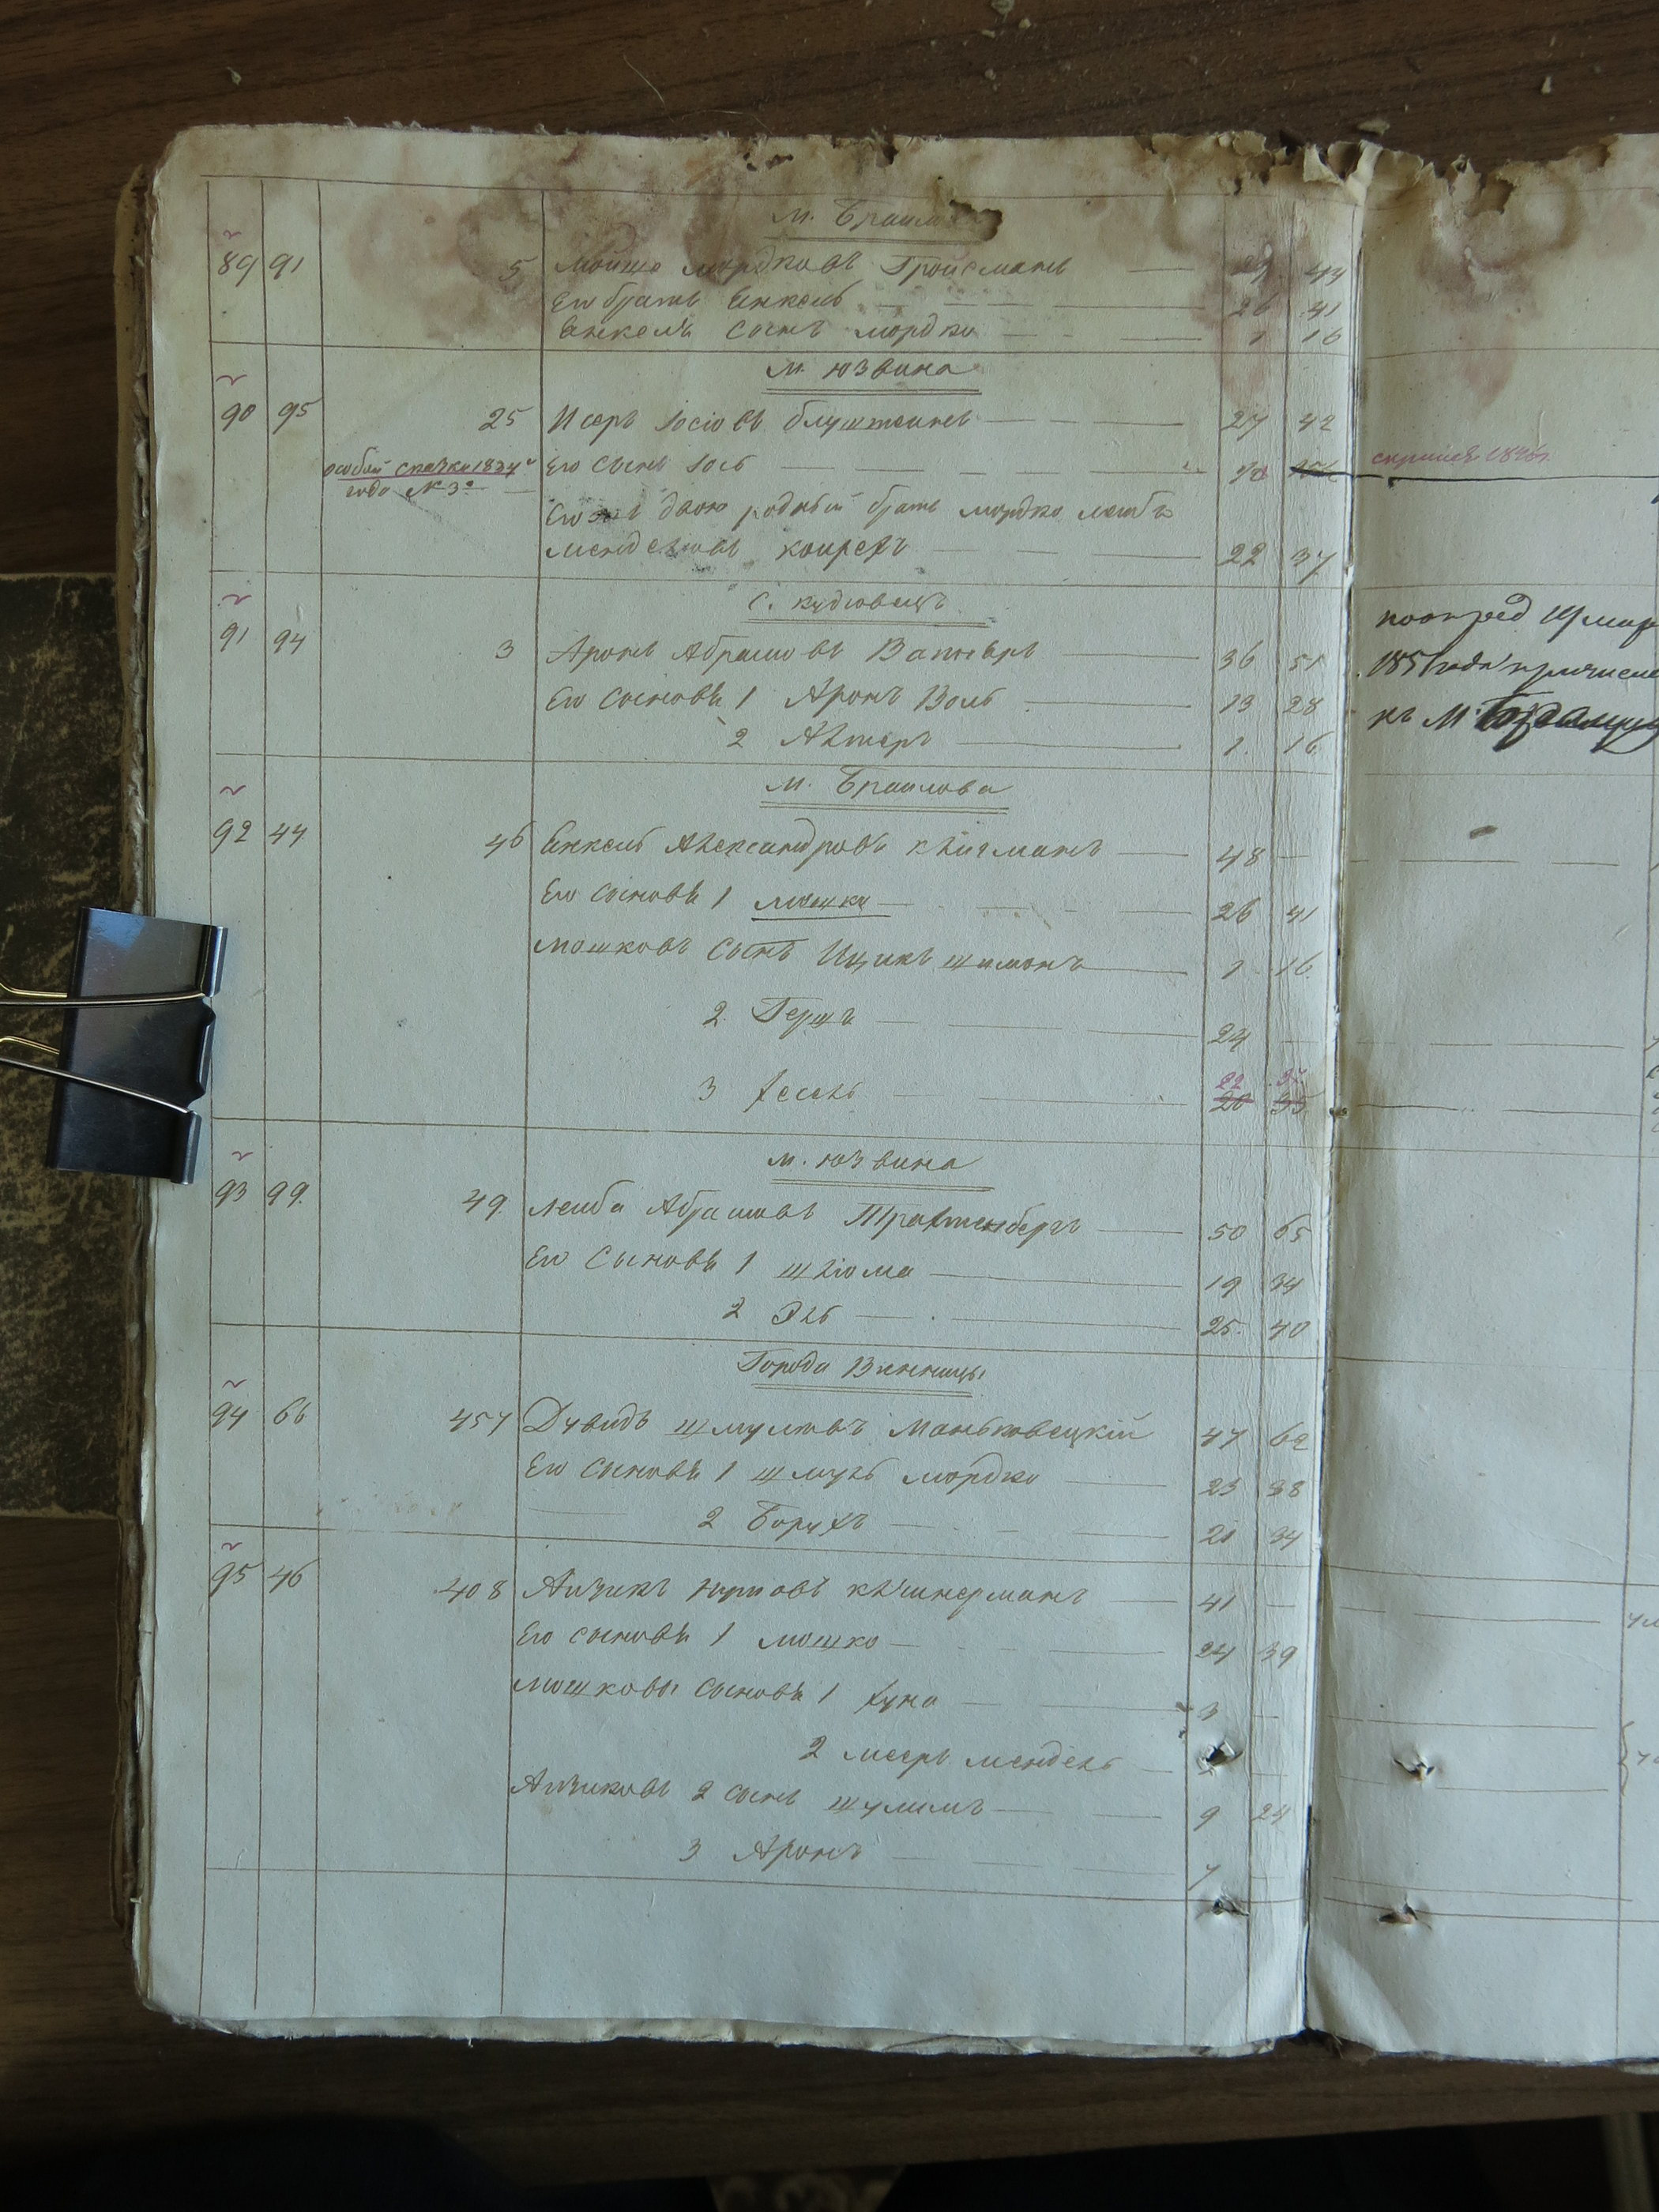 м. Браило
89 91 5 Мойше Мордковъ Гройсманъ — 29 44
Его братъ Янкель — 26 41
Янкеля сынъ Мордко — 1 16
м. Юзвина
90 95 25 Исеръ Іосіовъ Блуштеинъ — 27 42
особой сказки 1834 Его сынъ Іось —
года № 3й
Его двою родный братъ Мордко Лейбъ
Менделювъ — 22 37
С. Кудіовецъ
91 94 3 Аронъ Абрамовъ — 36 51
Его сыновья 1 Аронъ Воль — 13 28
2 — 1. 16.
м. Браилова
92 44 46 Янкель Александровъ — 48 —
Его сыновья 1 Мошко — 26 41
Мошковъ сынъ Ицикъ Шимонъ — 1 16.
2 Гершъ — 24 —
22
3 — 20 35
м. Юзвина
93 99. 49. Лейба Абрамовъ Трахтенбергъ — 50 65
Его сыновья 1 Шлюма — 19 34
2 Эль — 25. 40
Города Винницы
94 66 457 Дувидъ Шмулювъ Маньковецкій 47 62
Его сыновья 1 Шмуль Мордко — 23 38
2 Борухъ —
95 46 408 Айзикъ Клинерманъ — 41 —
Его сыновья 1 Мошко — 24 39
Мошковы сыновья 1 Хуна — 3 —
2 Мееръ Мендель —
Айзиковъ 2 сынъ Шулимъ — 9 24
3 Аронъ — 7
1851 года
къ М.